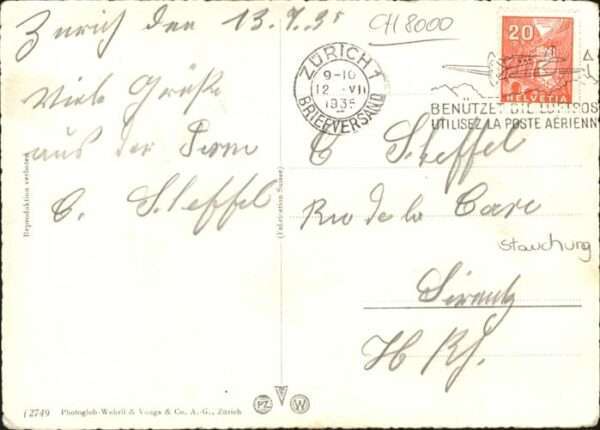 Zurich den 13.7.35
CH 8000
20
HELVETIA
ZÜRICH 1
9-10
12.VII
1935
BRIEFVERSAND
BENÜTZET DIE LUFTPOS
UTILISEZ LA POSTE AERIENN
Viele Grüße
aus der Fern
C. Steffel
C Steffel
Rue de la Gare
stauchung
Sirentz
H Rh.
Reproduktion verboten
(Fabrication Suisse)
12749 Photoglob-Wehrli & Vouga & Co. A.-G., Zürich
PZ
W